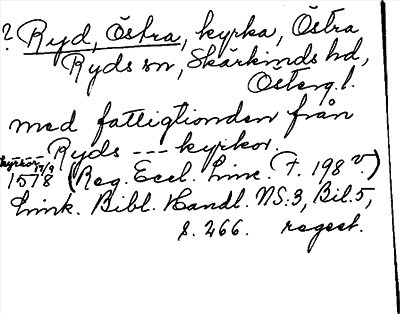 ? Ryd, Östra, kyrka, Östra
Ryds sn, Skärkinds hd,
Österg. l.
med fattigtionden från
Ryds --- kyrkor.
kyrkor 17/9
1578 (Reg. Eccl. Linc. F. 198 v.)
Link. Bibl. Handl. NS:3, Bil.5,
s. 266. regest.